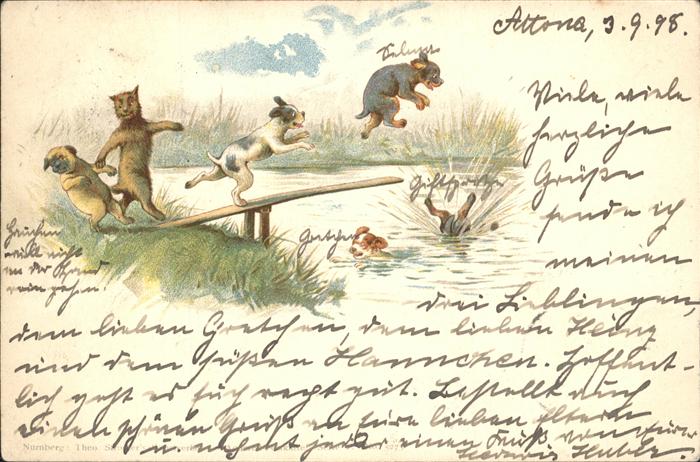 Altona, 3.9.98.
Viele, viele
herzliche
Grüße
sende ich
meinen
drei Lieblingen,
dem lieben Gretchen, dem lieben Heinz
und dem süßen Hannchen. Hoffent-
lich geht es Euch recht gut. Bestellt auch
einen schönen Gruß an Eure lieben Eltern
u. nehmt jeder einen Kuß von Eurer
Gretchen
will nicht
an der Hand
rein gehen.
Nürnberg: Theo.